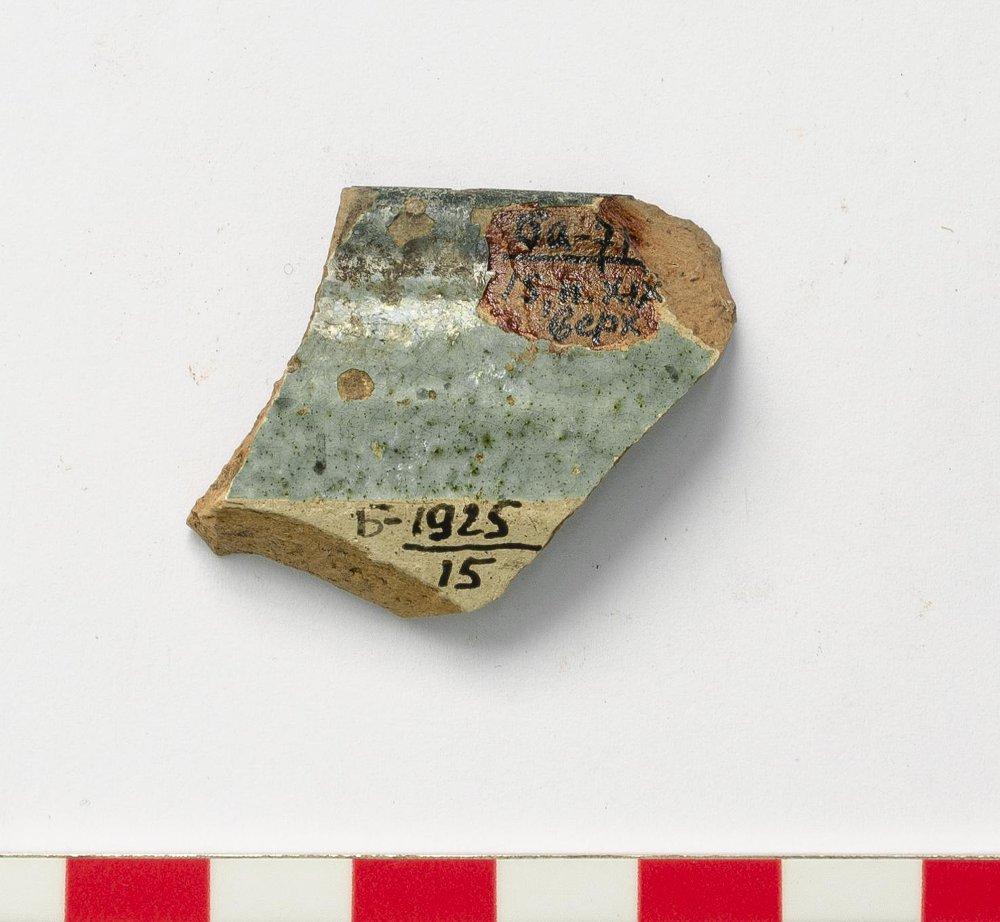 Ба-71
15, п. XIX
верх
Б-1925
15